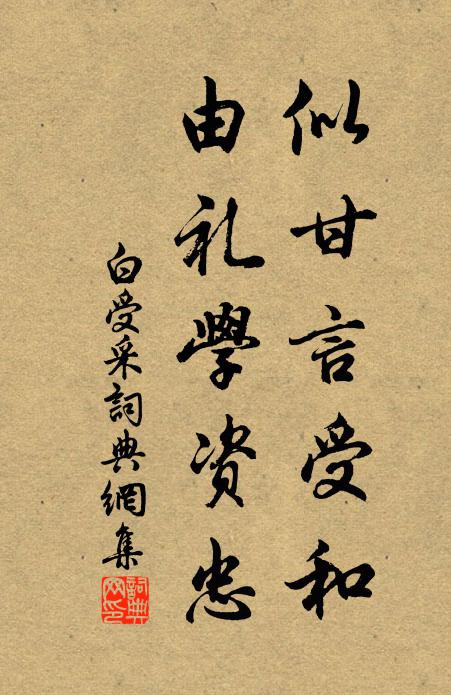 似甘言受和
由礼學资忠
白受采詞典網集
詞典网印